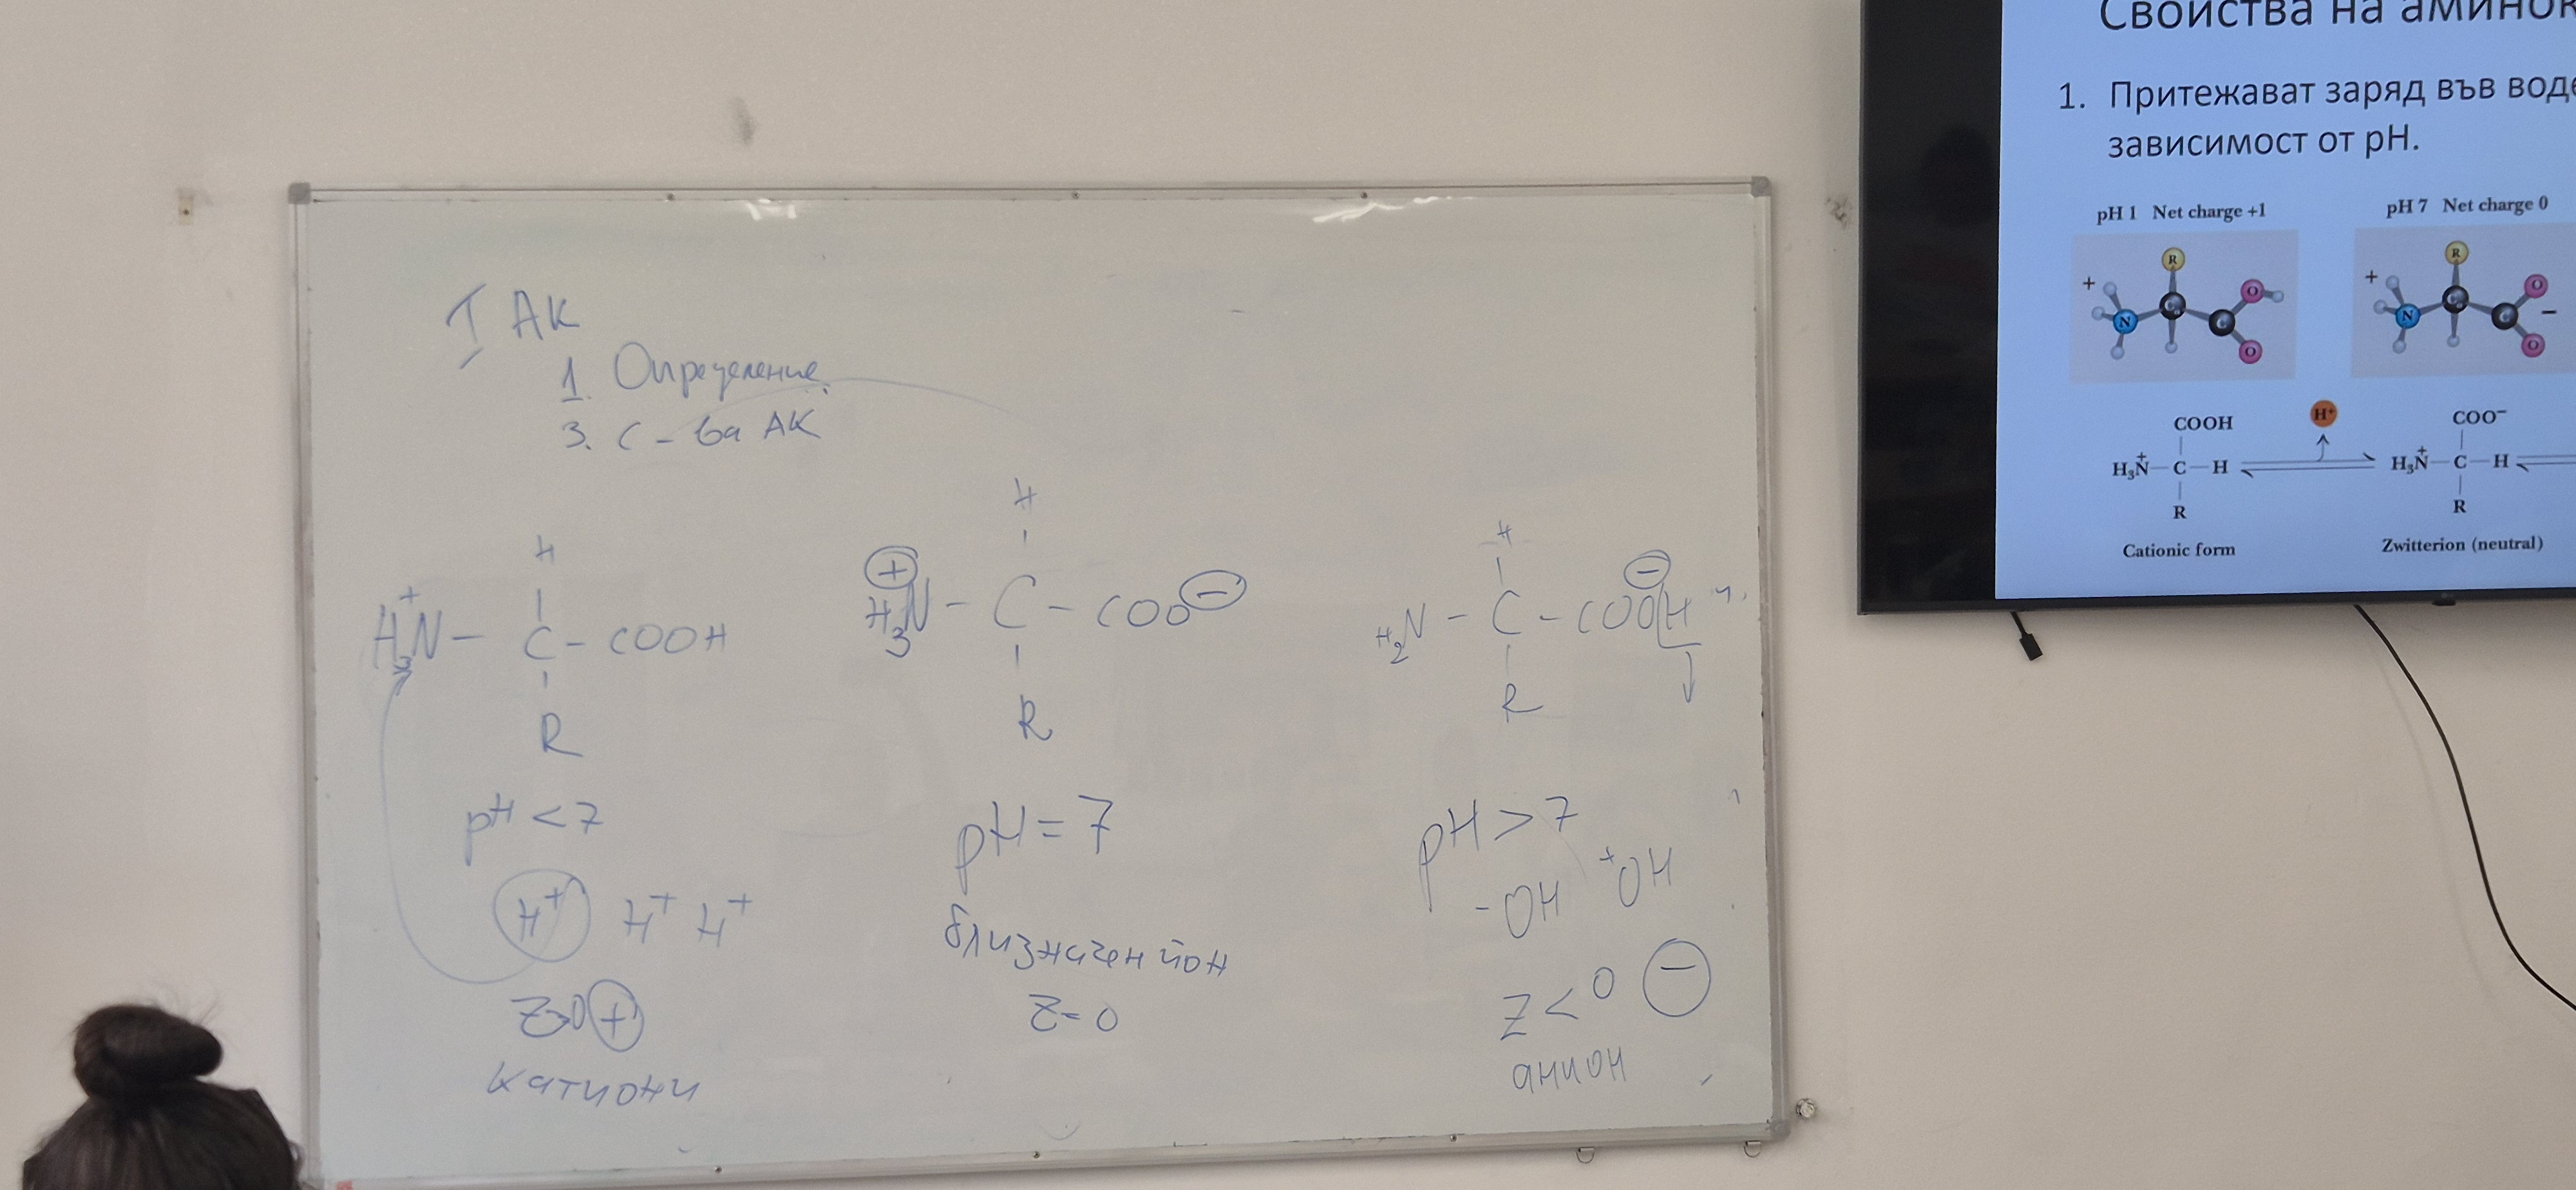 I AK
1. Определение
3. С-ва АК
H
H₃N⁺ - C - COOH
R
pH < 7
H⁺ H⁺ H⁺
Z>0 +
катиони
H
H₃N⁺ - C - COO⁻
R
pH = 7
близначен йон
Z = 0
H
H₂N - C - COO⁻H
R
pH > 7
-OH +OH
Z < 0 −
анион
Свойства на
1. Притежават заряд във
зависимост от pH.
pH 1 Net charge +1
pH 7 Net charge 0
+ R
N C C O
O
+ R
N C C O −
O
COOH
H₃N⁺ — C — H
R
Cationic form
H⁺
COO⁻
H₃N⁺ — C — H
R
Zwitterion (neutral)